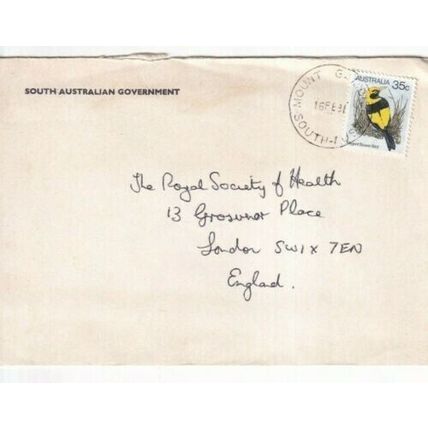 SOUTH AUSTRALIAN GOVERNMENT
MOUNT G
16 FE
SOUTH
AUSTRALIA 35c
The Royal Society of Health
13 Grosvenor Place
London SW1X 7EN
England.